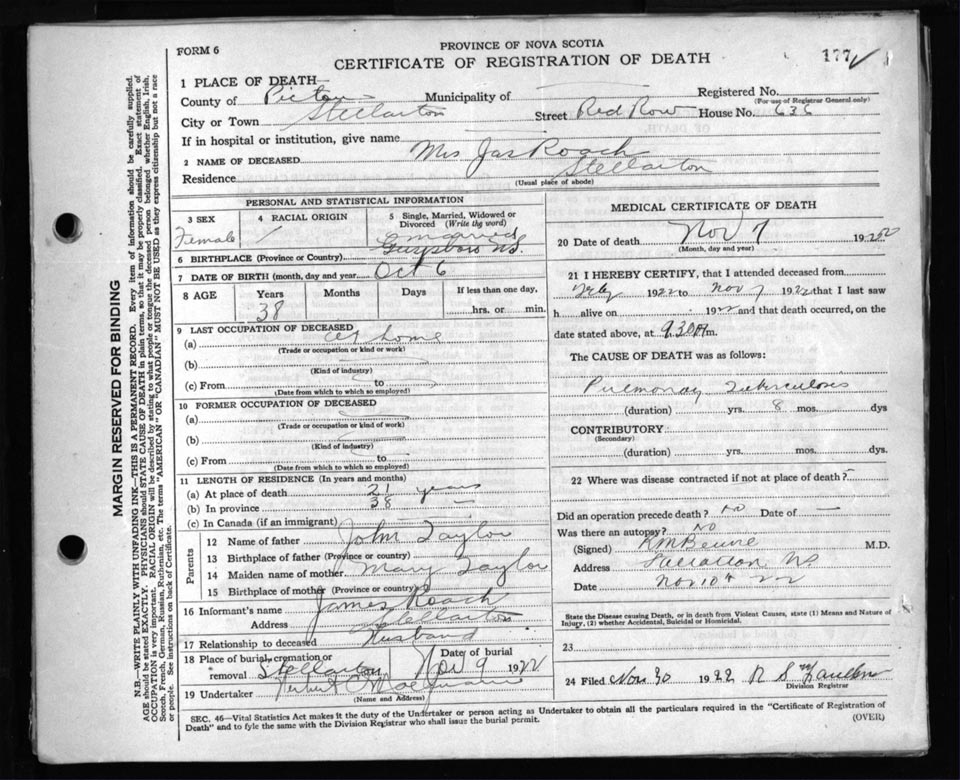 FORM 6
PROVINCE OF NOVA SCOTIA
CERTIFICATE OF REGISTRATION OF DEATH
177
1 PLACE OF DEATH—
County of Pictou Municipality of
Registered No.
(For use of Registrar General only)
City or Town Stellarton Street Red Row House No. 636
If in hospital or institution, give name
2 NAME OF DECEASED Mrs Jas Roach
Residence Stellarton
(Usual place of abode)
PERSONAL AND STATISTICAL INFORMATION
3 SEX
Female
4 RACIAL ORIGIN
5 Single, Married, Widowed or Divorced (Write the word)
married
6 BIRTHPLACE (Province or Country) Guysboro N.S.
7 DATE OF BIRTH (month, day and year Oct 6
8 AGE Years Months Days If less than one day,
38 hrs. or min.
9 LAST OCCUPATION OF DECEASED
(a) at home
(Trade or occupation or kind of work)
(b)
(Kind of industry)
(c) From to
(Date from which to which so employed)
10 FORMER OCCUPATION OF DECEASED
(a)
(Trade or occupation or kind of work
(b)
(Kind of industry)
(c) From to
(Date from which to which so employed)
11 LENGTH OF RESIDENCE (In years and months)
(a) At place of death 21 years
(b) In province 38 —
(c) In Canada (if an immigrant)
Parents
12 Name of father John Taylor
13 Birthplace of father (Province or country)
14 Maiden name of mother Mary Taylor
15 Birthplace of mother (Province or country)
16 Informant's name James Roach
Address Stellarton
17 Relationship to deceased Husband
18 Place of burial, cremation or removal Stellarton
Date of burial
Nov 9 1922
19 Undertaker
(Name and Address)
MEDICAL CERTIFICATE OF DEATH
20 Date of death Nov 7 1922
(Month, day and year)
21 I HEREBY CERTIFY, that I attended deceased from
1922 to Nov 7 1922 that I last saw
h alive on 1922 and that death occurred, on
date stated above, at 9.30 m.
The CAUSE OF DEATH was as follows:
Pulmonary Tuberculosis
(duration) yrs. 8 mos. dys
CONTRIBUTORY
(Secondary)
(duration) yrs. mos. dys.
22 Where was disease contracted if not at place of death?
Did an operation precede death? No Date of —
Was there an autopsy? No
(Signed) M.D.
Address
Date Nov 10th 22
State the Disease causing Death, or in death from Violent Causes, state (1) Means and Nature of Injury, (2) whether Accidental, Suicidal or Homicidal.
23
24 Filed Nov 30 1922 R S
Division Registrar
SEC. 46—Vital Statistics Act makes it the duty of the Undertaker or person acting as Undertaker to obtain all the particulars required in the "Certificate of Registration of Death" and to fyle the same with the Division Registrar who shall issue the burial permit.
(OVER)
MARGIN RESERVED FOR BINDING
N.B.—WRITE PLAINLY WITH UNFADING INK—THIS IS A PERMANENT RECORD. Every item of information should be carefully supplied.
AGE should be stated EXACTLY. PHYSICIANS should STATE CAUSE OF DEATH in plain terms, so that it may be properly classified. Exact statement of
OCCUPATION is very important. RACIAL ORIGIN will be described by stating to what people or tongue the deceased person belonged whether English, Irish,
Scotch, French, German, Russian, Ruthenian, etc. The terms "AMERICAN" OR "CANADIAN" MUST NOT BE USED as they express citizenship but not a race
or people. See instructions on back of Certificate.